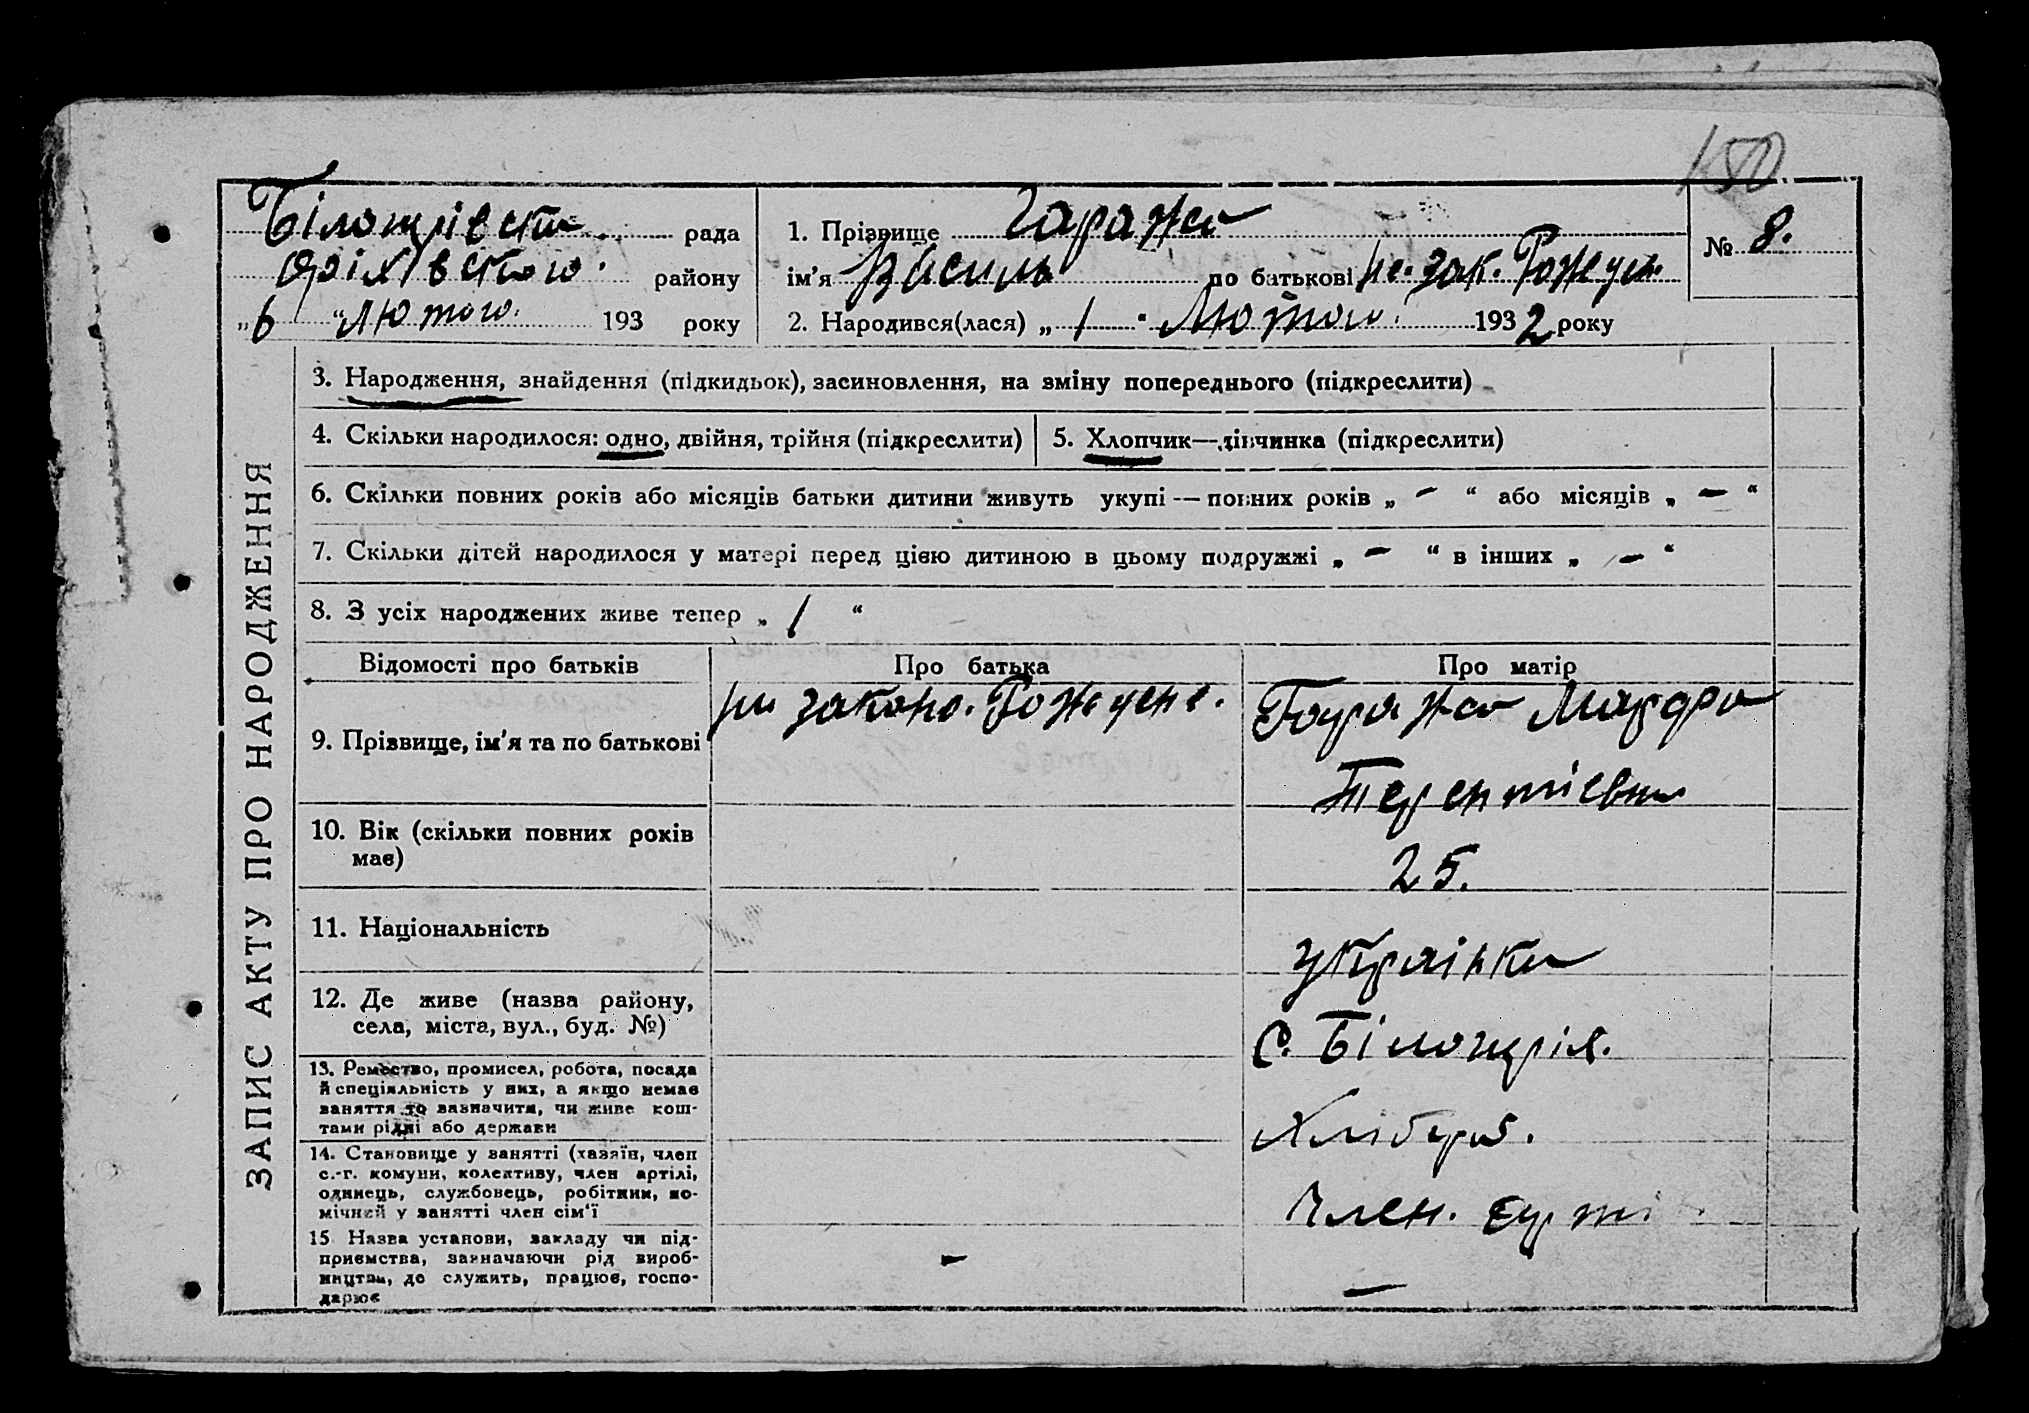 150
Білогирівська рада
Оріхівського району
„6 “ Лютого. 193 року
1. Прізвище Гаража
ім'я Василь по батькові не. зак. Рожден.
2. Народився(лася) „ 1 “ Лютого. 1932 року
№ 8.
ЗАПИС АКТУ ПРО НАРОДЖЕННЯ
3. Народження, знайдення (підкидьок), засиновлення, на зміну попереднього (підкреслити)
4. Скільки народилося: одно, двійня, трійня (підкреслити)
5. Хлопчик—дівчинка (підкреслити)
6. Скільки повних років або місяців батьки дитини живуть укупі — повних років „ – “ або місяців „ – “
7. Скільки дітей народилося у матері перед цією дитиною в цьому подружжі „ – “ в інших „ – “
8. З усіх народжених живе тепер „ 1 “
Відомості про батьків
Про батька
Про матір
9. Прізвище, ім'я та по батькові
законо. Рожденe.
Гаража
Терентіевна
10. Вік (скільки повних років
має)
25.
11. Національність
українка
12. Де живе (назва району,
села, міста, вул., буд. №)
с. Білогиріл.
13. Ремество, промисел, робота, посада
й спеціяльність у них, а якщо немає
заняття то зазначити, чи живе кош-
тами рідні або держави
Хлібороб.
14. Становище у занятті (хазяїн, член
с.-г. комуни, колективу, член артілі,
одинець, службовець, робітник, по-
мічний у занятті член сім'ї
Член.
15. Назва установи, закладу чи під-
приємства, зазначаючи рід вироб-
ництва, де служить, працює, госпо-
дарює
–
–